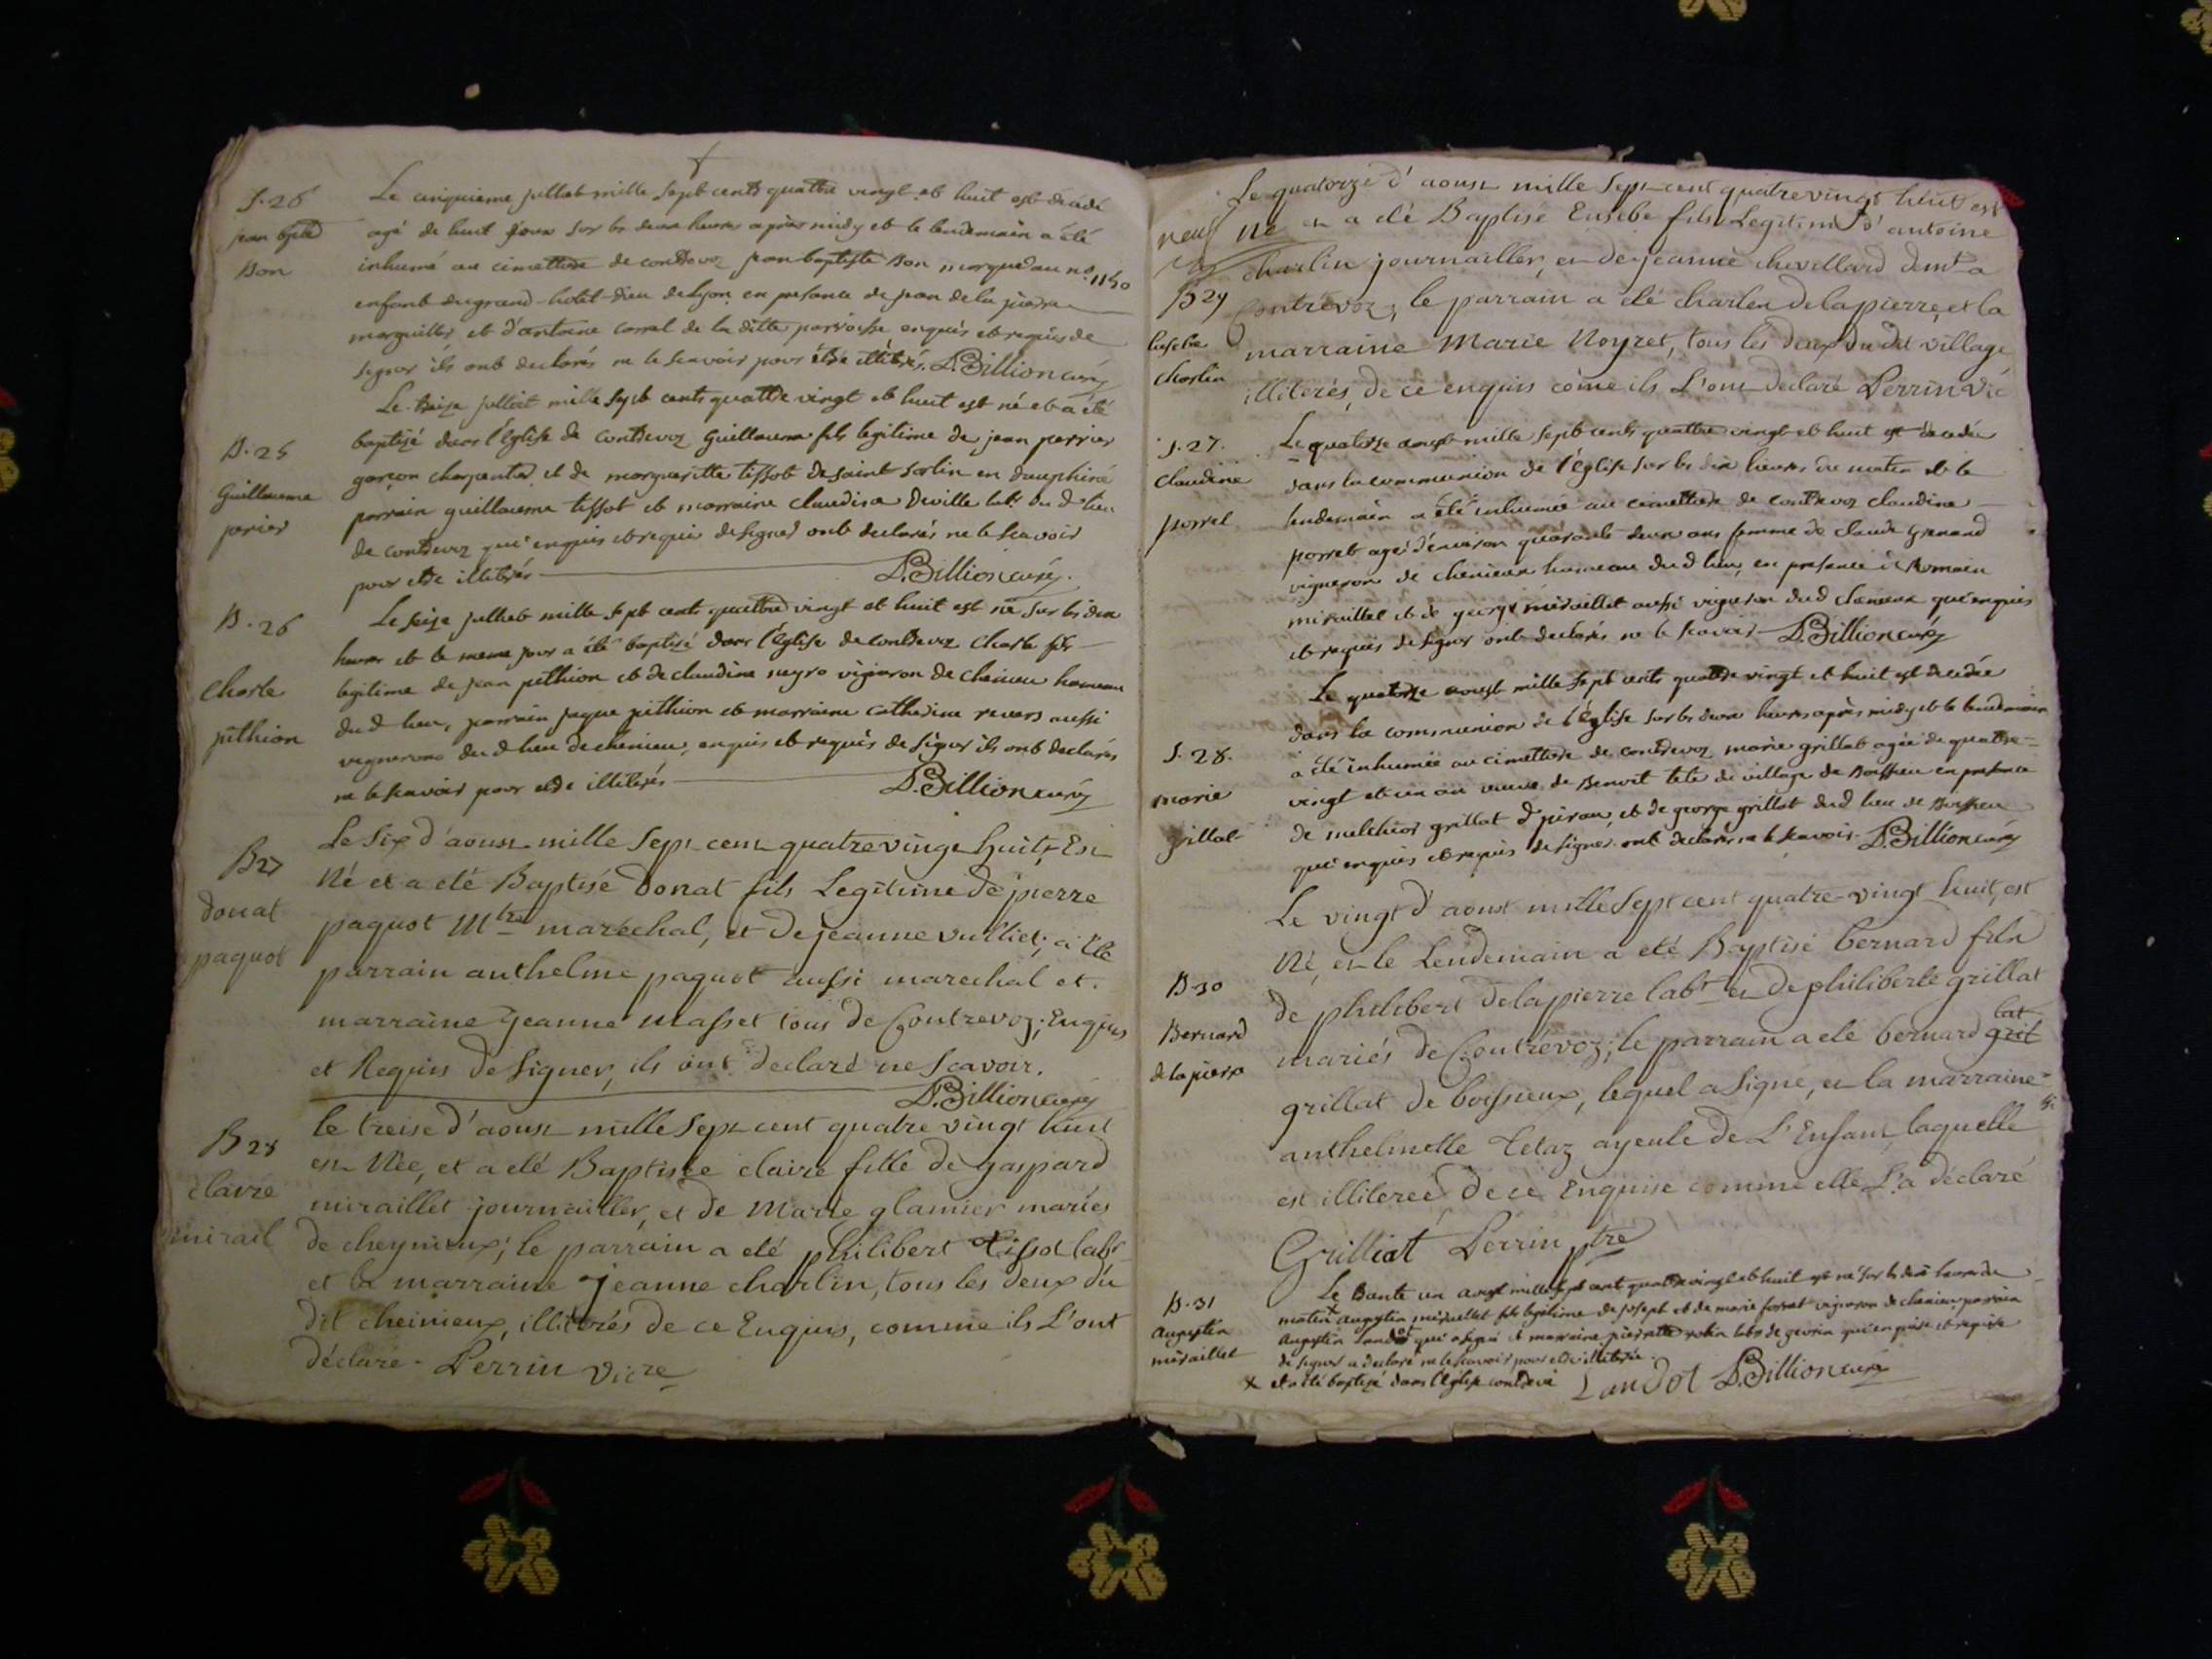 S. 26
jean bptte
Bon
Le cinquieme jullet mille sept cents quattre vingt et huit est decedé
agé de huit jours sur les deux heures après midy et le lendemain a été
inhumé au cimettiere de contrevoz jean baptiste Bon marqué au no. 1150
enfant du grand hotel-Dieu de Lyon en presance de jean de la pierre
marguillier et d'antoine correl de la ditte parroisse enquis et requis de
signer ils ont declarés ne le scavoir pour être illiterés. D. Billion curé
B. 25
Guillaume
perier
Le treize jullet mille sept cents quattre vingt et huit est né et a été
baptizé dans l'Eglise de contrevoz Guillaume fils legitime de jean perrier
garçon charpentier et de margueritte tissot de saint sorlin en dauphiné
parrain guillaume tissot et marraine claudine Deville labr. du d. lieu
de contrevoz qui enquis et requis de signer ont declarés ne le scavoir
pour etre illiterés D. Billion curé.
B. 26
Charle
pithion
Le seize jullet mille sept cents quattre vingt et huit est né sur les dix
heures et le meme jour a été baptizé dans l'église de contrevoz charle fils
legitime de jean pithion et de claudine neyro vigneron de cheinieu hameau
du d. lieu, parrain jaque pithion et marraine catherine revers aussi
vignerons du d. lieu de cheinieu, enquis et requis de signer ils ont declarés
ne le scavoir pour etre illiterés D. Billion curé
B 27
donat
paquot
Le six d'aoust mille sept cent quatre vingt huit, Est
Né et a eté Baptisé Donat fils Legitime de pierre
paquot Mtre maréchal, et de jeanne vulliet; a Eté
parrain anthelme paquot aussi marechal et
marraine jeanne Masset tous de Contrevoz; Enquis
et Requis de signer, ils ont declaré ne scavoir.
D. Billion curé
B 28
claire
mirail
le treise d'aoust mille sept cent quatre vingt huit
est Née, et a eté Baptisée claire fille de gaspard
miraillet journailler, et de Marie glannier mariés
de cheynieux; le parrain a eté philibert Tissot labr
et la marraine jeanne charlin, tous les deux du
dit cheinieux, illiterés de ce Enquis, comme ils L'ont
déclaré. Perrin vicre
Le quatorze d'aoust mille sept cent quatre vingt huit est
neuf Né et a eté Baptisé Eusebe fils Legitime d'antoine
B 29
Eusebe
charlin
charlin journailler, et de jeanne chevellard demt a
Contrevoz, le parrain a eté charles de lapierre, et la
marraine Marie Noyret, tous les deux du dit village
illiterés, de ce enquis come ils L'ont declaré Perrin vic
S. 27.
Claudine
porret
Le quatorze aoust mille sept cents quattre vingt et huit est decedée
dans la communion de l'église sur les dix heures du matin et le
lendemain a été inhumée au cimettiere de contrevoz claudine
porret agée d'environ quarante deux ans femme de claude Grenand
vigneron de chenieux hameau du d lieu, en presance de Romain
miraillet et de george miraillet aussi vigneron dud chenieux qui enquis
et requis de signer ont declarés ne le scavoir D. Billion curé
S. 28.
marie
grillat
Le quatorze aoust mille sept cents quattre vingt et huit est decedée
dans la communion de l'église sur les deux heures après midy et le lendemain
a été inhumée au cimettiere de contrevoz marie grillat agée de quattre
vingt et un an veuve de Benoit tete du village de Boissieu en presance
de melchior grillat et de george grillat dud lieu de Boissieu
qui enquis et requis de signer ont declarés ne le scavoir. D. Billion curé
B-30
Bernard
de la pierre
Le vingt d'aoust mille sept cent quatre-vingt huit, est
Né, et le Lendemain a eté Baptisé bernard fils
de philibert delapierre labr et de philiberte grillat
mariés de Contrévoz; le parrain a eté bernard gril lat
grillat de boissieux, lequel a signé, et la marraine
anthelmette Tetaz ayeule de L'Enfant, laquelle
est illiterée, de ce Enquise comme elle L'a déclaré
Grilliat Perrin ptre
B. 31
augustin
miraillet
Le trante un aoust mille sept cent quattre vingt et huit est né sur les dix heures du
matin x augustin miraillet fils legitime de joseph et de marie forrat vigneron de chenieu, parrain
augustin landot qui a signé et marraine pierrette robin labr de gevrin qui enquise et requise
de signer a declaré ne le scavoir pour etre illiterée.
x et a été baptizé dans l'église contrevoz Landot D. Billion curé